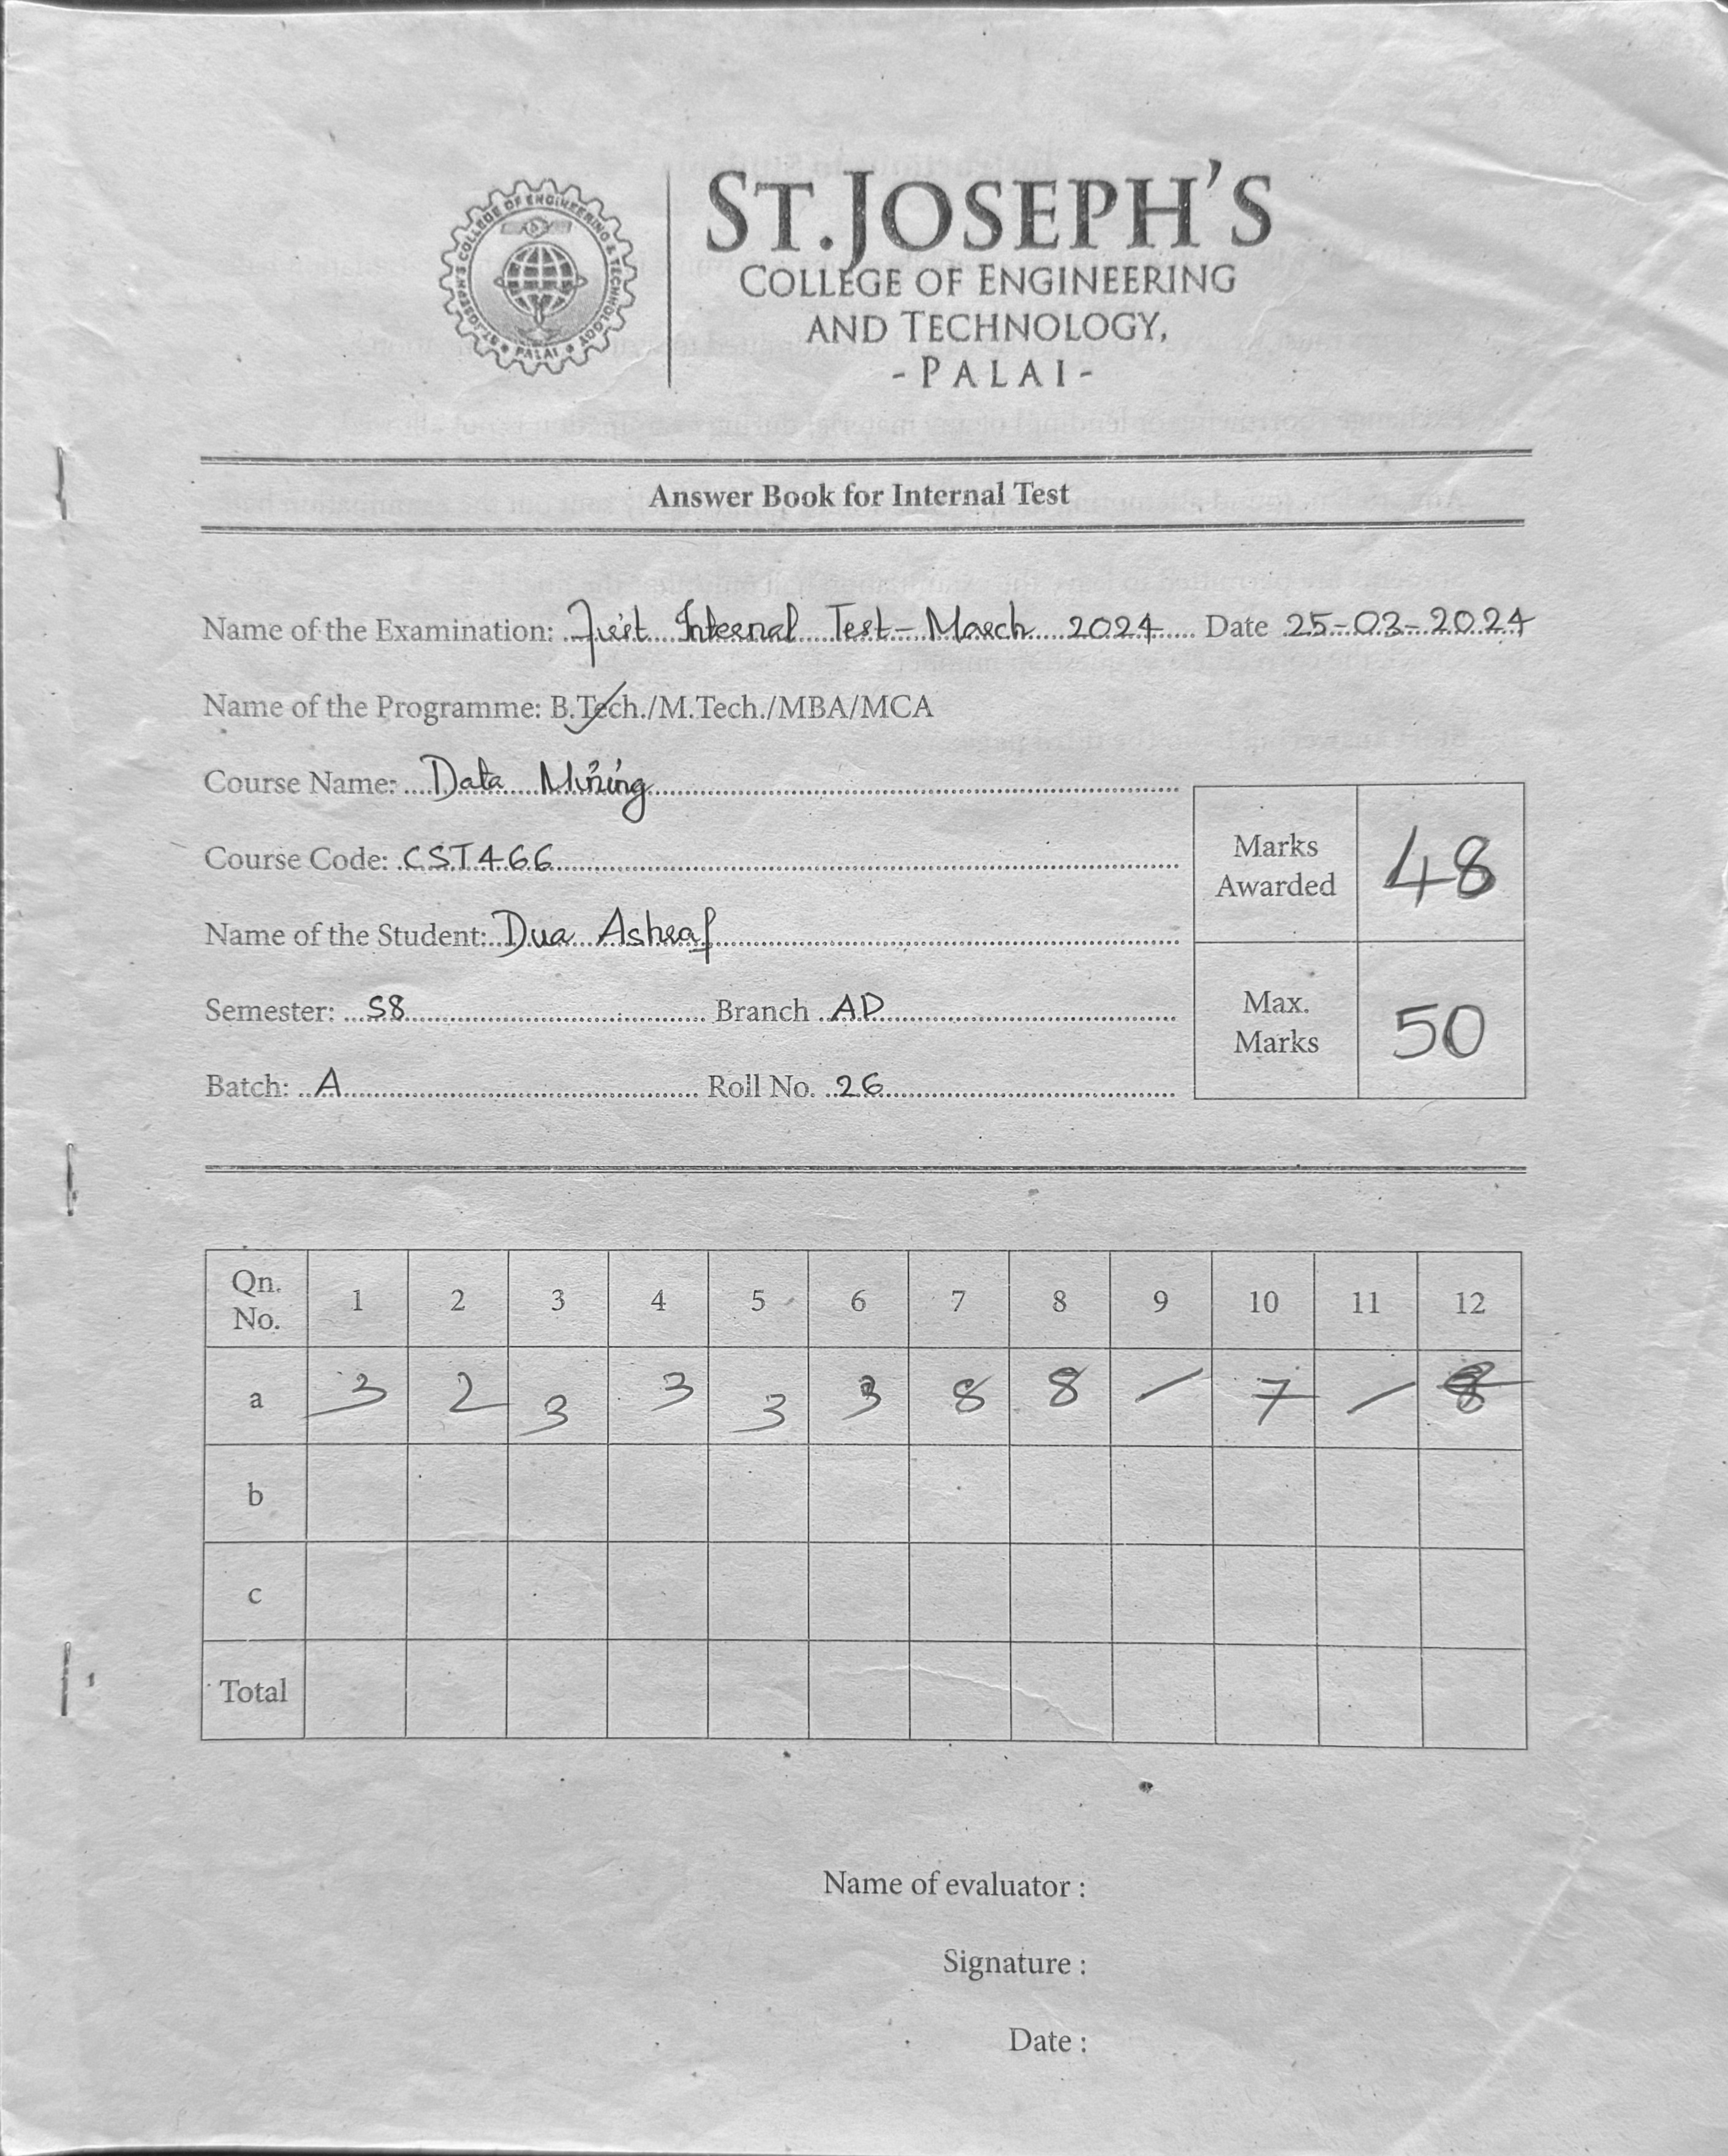 ST. JOSEPH'S COLLEGE OF ENGINEERING & TECHNOLOGY
PALAI
ST. JOSEPH'S
COLLEGE OF ENGINEERING
AND TECHNOLOGY,
- PALAI -
Answer Book for Internal Test
Name of the Examination: First Internal Test - March 2024 Date 25-03-2024
Name of the Programme: B.Tech./M.Tech./MBA/MCA
Course Name: Data Mining
Course Code: CST466
Name of the Student: Dua Ashraf
Semester: S8 Branch AD
Batch: A Roll No. 26
Marks Awarded 48
Max. Marks 50
Qn. No. 1 2 3 4 5 6 7 8 9 10 11 12
a 3 2 3 3 3 3 8 8 – 7 – 8
b
c
Total
Name of evaluator :
Signature :
Date :